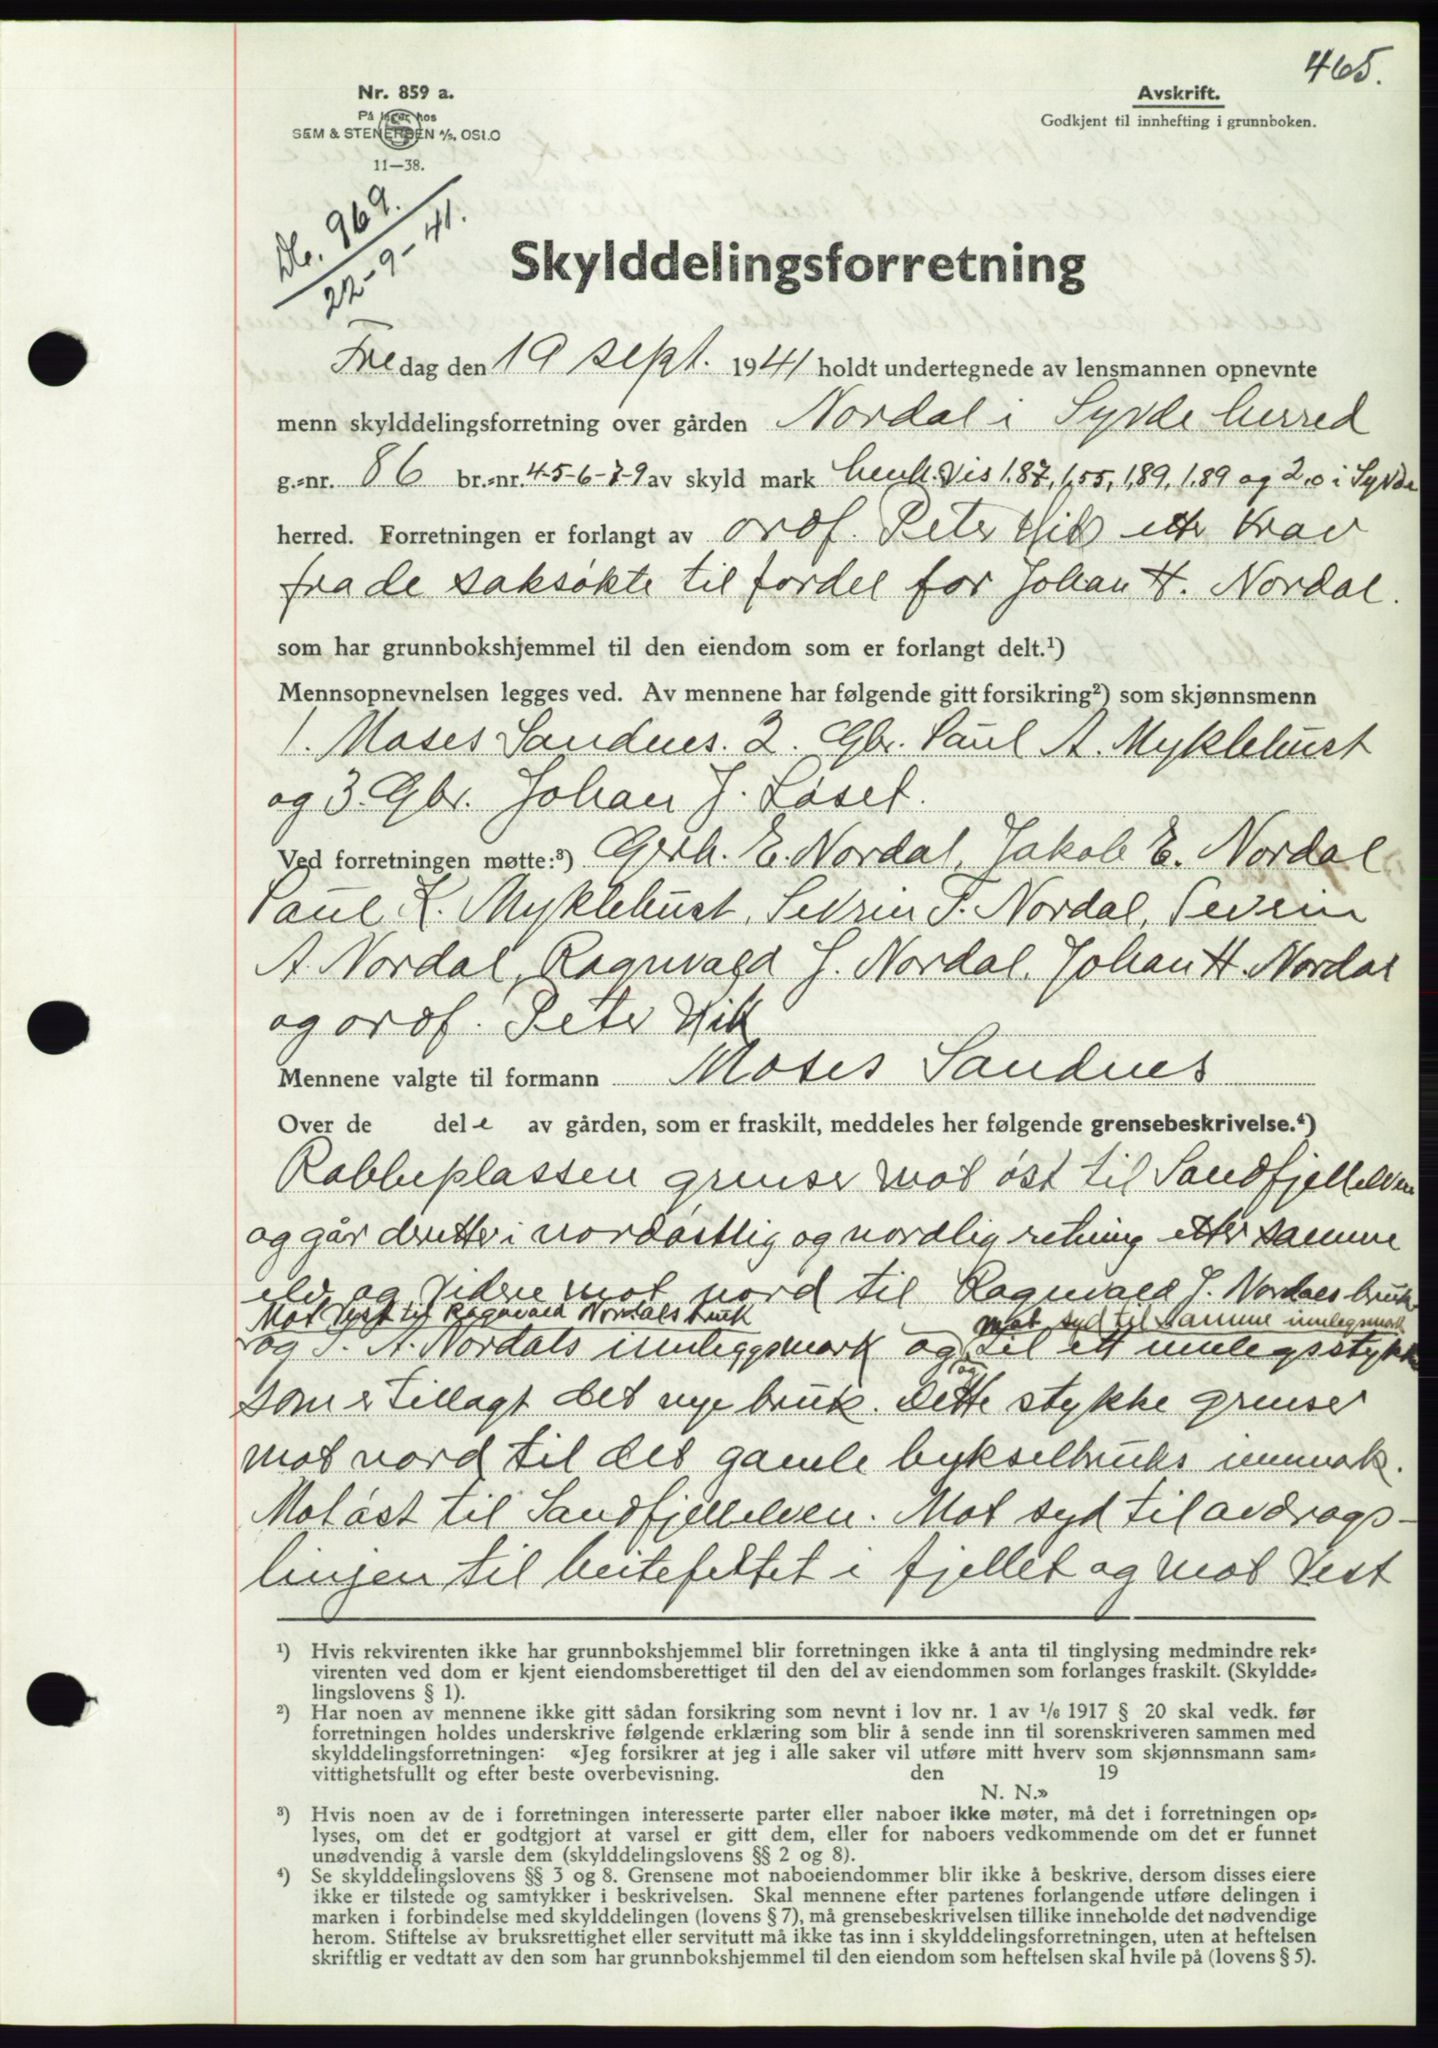 465.
Nr. 859 a.
På lager hos
SEM & STENERSEN A/S, OSLO
11—38.
Avskrift.
Godkjent til innhefting i grunnboken.
Db. 969.
22-9-41.
Skylddelingsforretning
Fredag den 19 sept. 1941 holdt undertegnede av lensmannen opnevnte
menn skylddelingsforretning over gården Nordal i Syvde herred
g.=nr. 86 br.=nr. 4-5-6-7-9 av skyld mark henh.vis 1.87, 1,55, 1,89, 1.89 og 2,0 i Syvde
herred. Forretningen er forlangt av ordf. Peter Vik etter krav
fra de saksøkte til fordel for Johan H. Nordal.
som har grunnbokshjemmel til den eiendom som er forlangt delt.¹)
Mennsopnevnelsen legges ved. Av mennene har følgende gitt forsikring²) som skjønnsmenn
1. Moses Sandnes. 2. Gbr. Paul A. Myklebust
og 3. Gbr. Johan J. Løset.
Ved forretningen møtte:³) Gerh. E. Nordal, Jakob E. Nordal
Paul K. Myklebust, Sevrin F. Nordal, Sevrin
A. Nordal, Ragnvald J. Nordal, Johan H. Nordal
og ordf. Peter Vik
Mennene valgte til formann Moses Sandnes
Over de dele av gården, som er fraskilt, meddeles her følgende grensebeskrivelse.⁴)
Rabbeplassen grenser mot øst til Sandfjellelven
og går deretter i nordøstlig og nordlig retning etter samme
elv og videre mot nord til Ragnvald J. Nordals bruk
Mot vest til Ragnvald Nordals bruk mot syd til samme innlegsmark
og S. A. Nordals innleggsmark og til ett innlegsstykke
og
som er tillagt det nye bruk. Dette stykke grenser
mot nord til det gamle bykselbruks innmark.
Mot øst til Sandfjellelven. Mot syd til avdrags-
linjen til beitefeltet i fjellet og mot vest
¹) Hvis rekvirenten ikke har grunnbokshjemmel blir forretningen ikke å anta til tinglysing medmindre rek=
virenten ved dom er kjent eiendomsberettiget til den del av eiendommen som forlanges fraskilt. (Skyldde=
lingslovens § 1).
²) Har noen av mennene ikke gitt sådan forsikring som nevnt i lov nr. 1 av 1/6 1917 § 20 skal vedk. før
forretningen holdes underskrive følgende erklæring som blir å sende inn til sorenskriveren sammen med
skylddelingsforretningen: «Jeg forsikrer at jeg i alle saker vil utføre mitt hverv som skjønnsmann sam=
vittighetsfullt og efter beste overbevisning. den 19
N. N.»
³) Hvis noen av de i forretningen interesserte parter eller naboer ikke møter, må det i forretningen op=
lyses, om det er godtgjort at varsel er gitt dem, eller for naboers vedkommende om det er funnet
unødvendig å varsle dem (skylddelingslovens §§ 2 og 8).
⁴) Se skylddelingslovens §§ 3 og 8. Grensene mot naboeiendommer blir ikke å beskrive, dersom disses eiere
ikke er tilstede og samtykker i beskrivelsen. Skal mennene efter partenes forlangende utføre delingen i
marken i forbindelse med skylddelingen (lovens § 7), må grensebeskrivelsen tillike inneholde det nødvendige
herom. Stiftelse av bruksrettighet eller servitutt må ikke tas inn i skylddelingsforretningen, uten at heftelsen
skriftlig er vedtatt av den som har grunnbokshjemmel til den eiendom som heftelsen skal hvile på (lovens § 5).